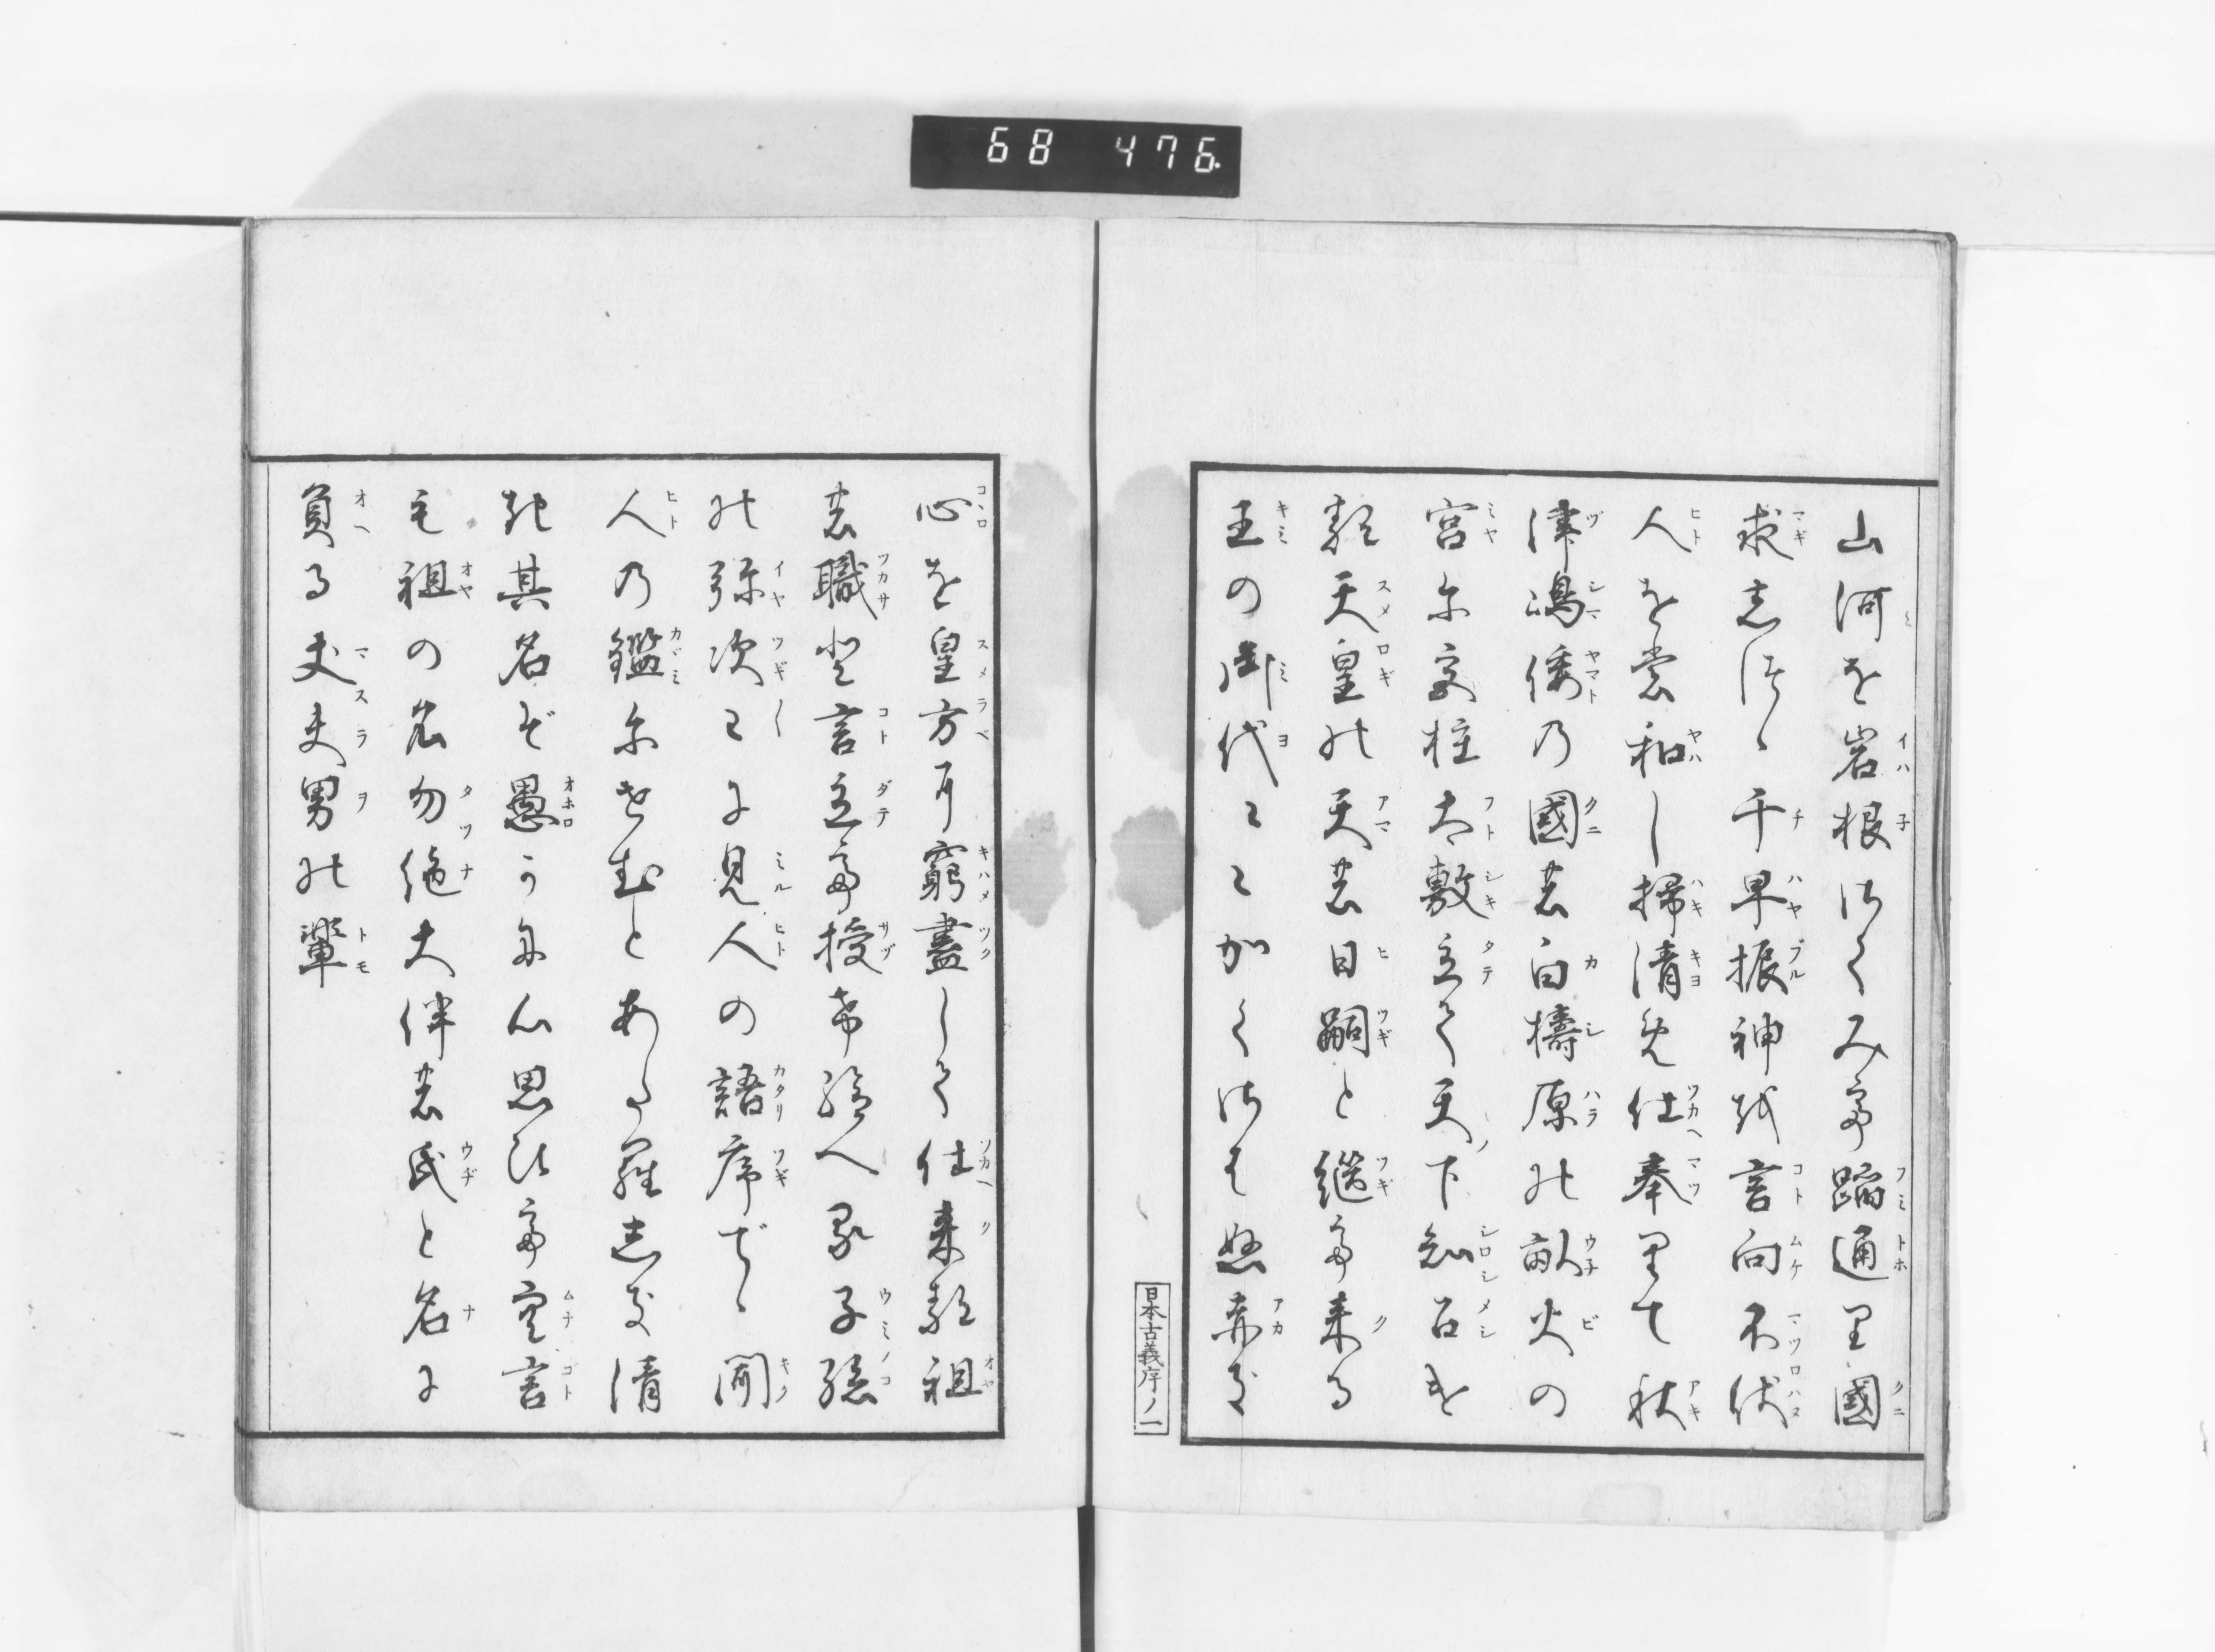 68 476
山河を岩根さくみて蹈通り國
求しつゝ千早振神を言向不伏
人をも和し掃清め仕奉りて秋
津嶋倭の國の白檮原の畝火の
宮に宮柱太敷立て天下知召け
る天皇の天の日嗣と継て来る
王の御代々々かくさはぬ赤き
日本古義序ノ一
心を皇方に窮盡して仕来る祖
の職と言立て授け給へる子孫
の弥次々に見人の語序でゝ聞
人の鑑にせむとあたらしき清
き其名ぞ愚かに心思ひて空言
も祖の名勿絶大伴の氏と名に
負る丈夫男の輩